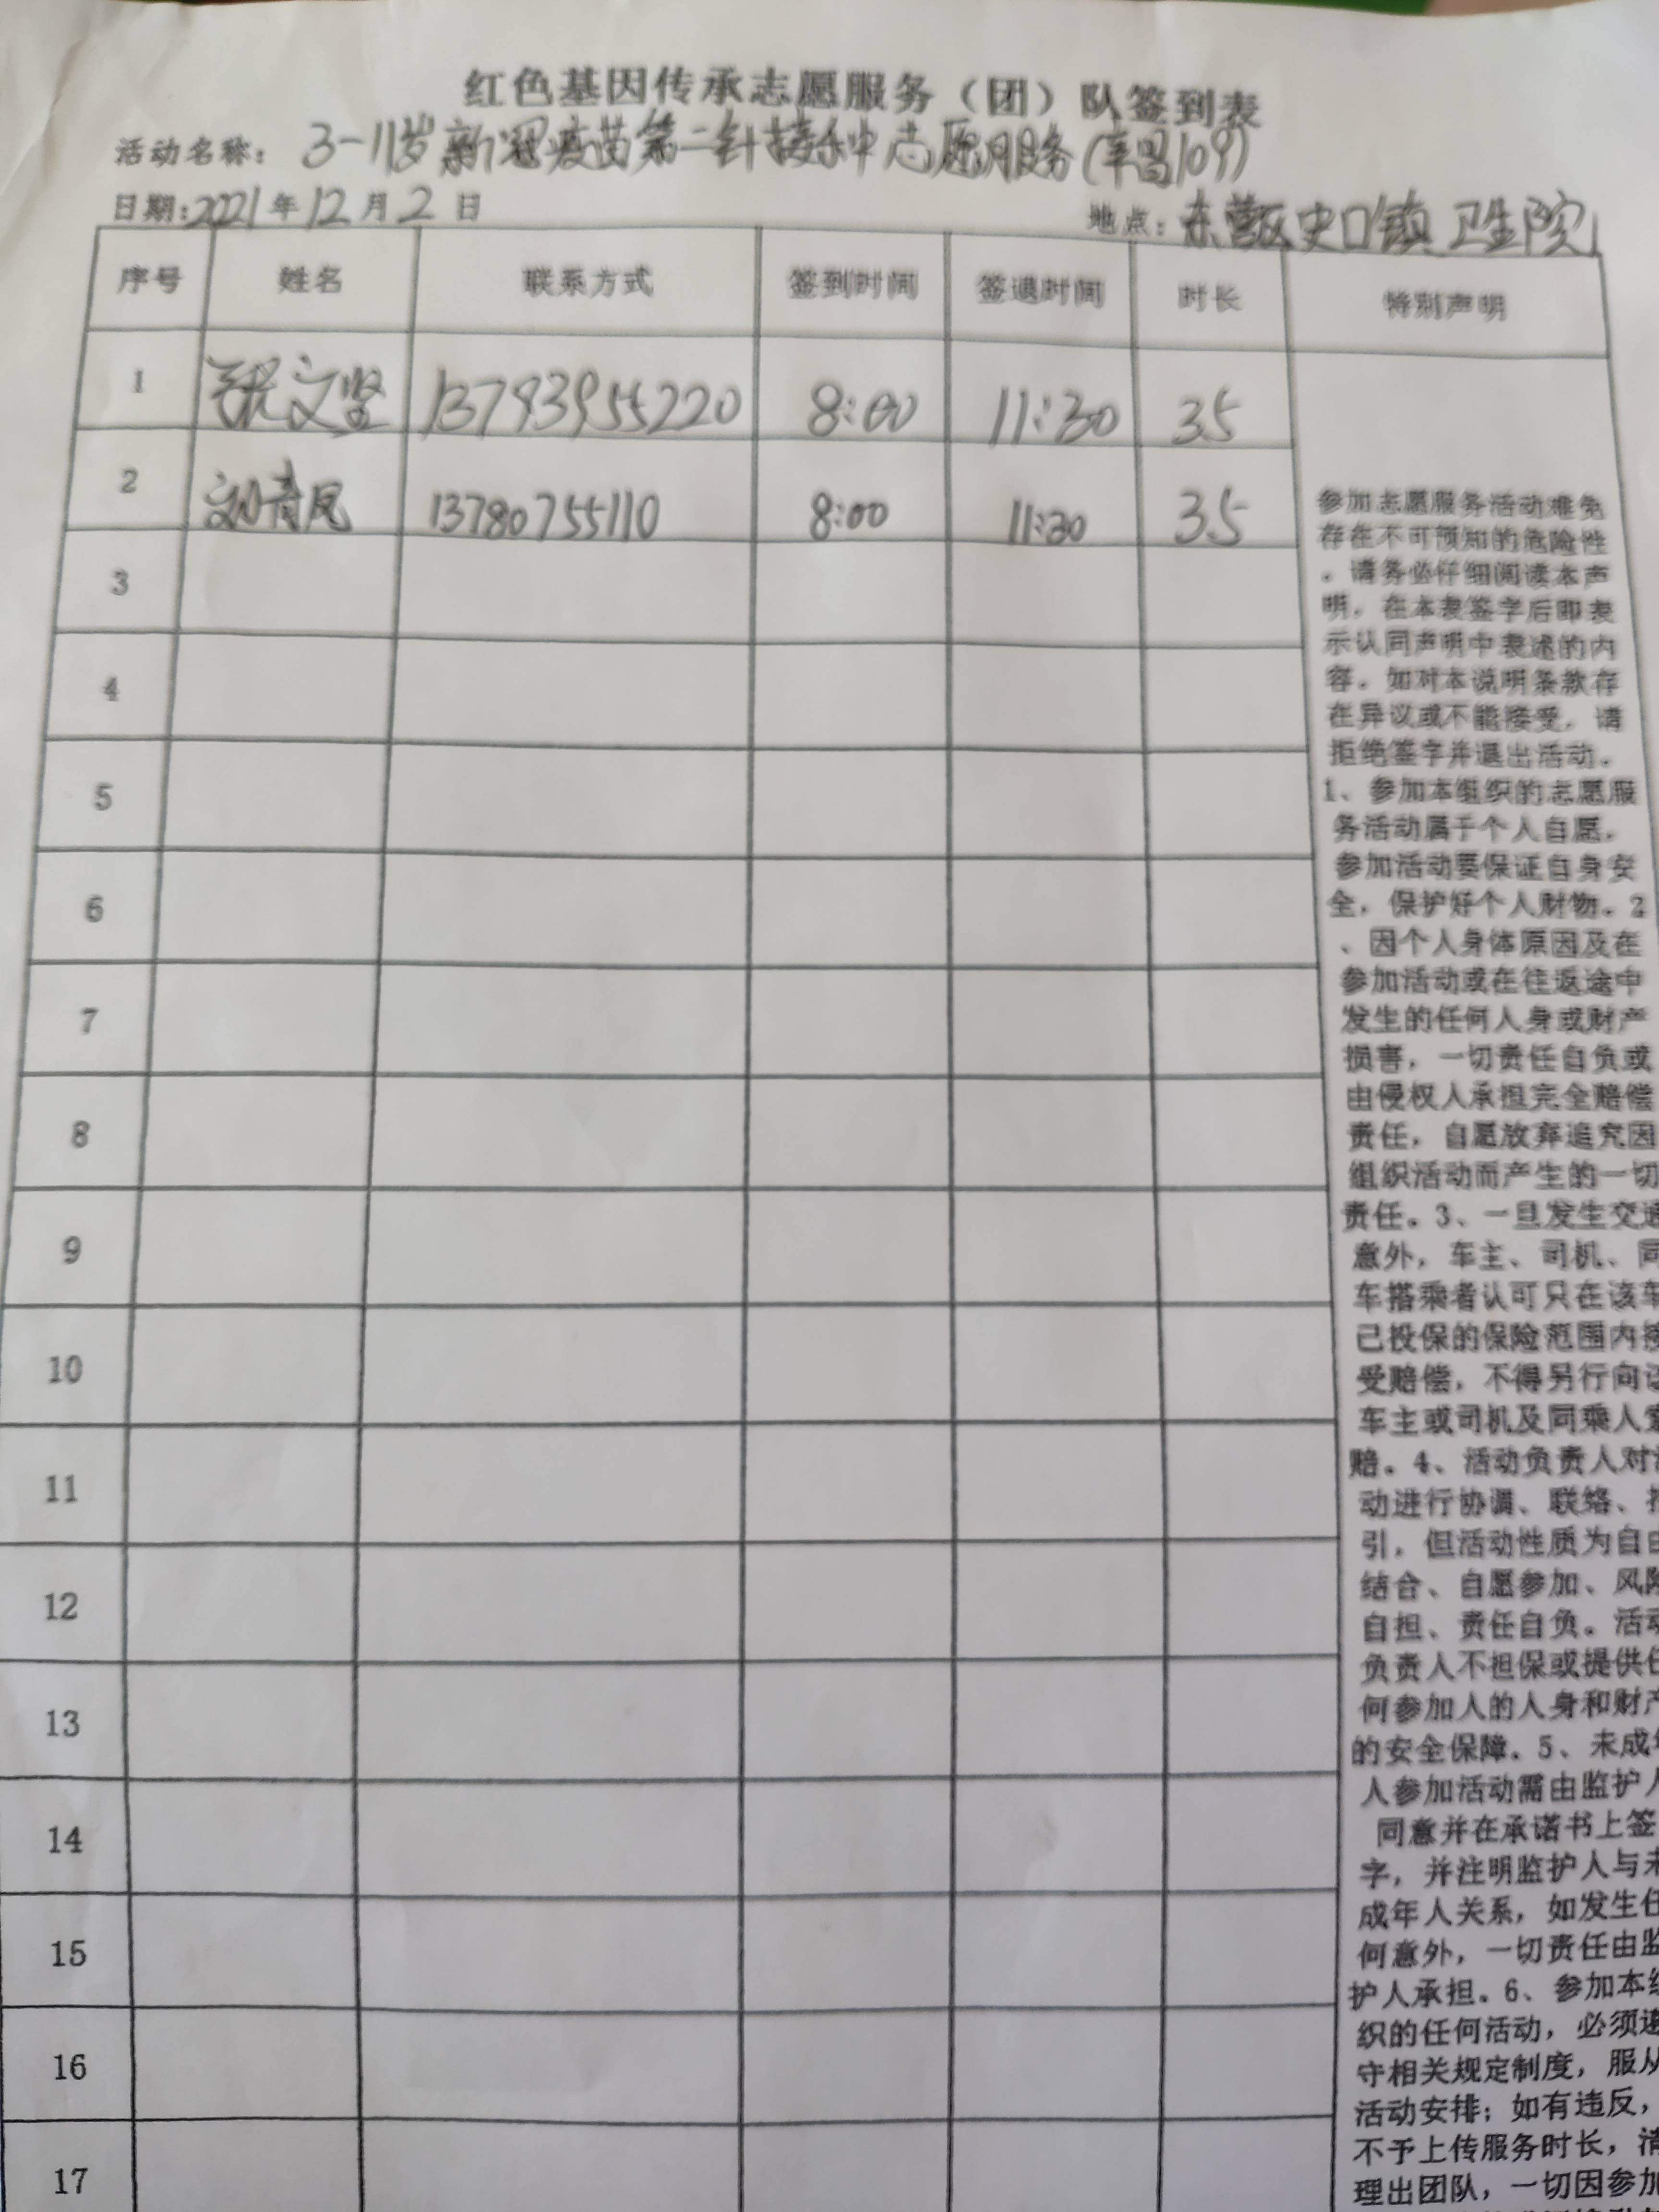 红色基因传承志愿服务（团）队签到表
活动名称：3-11岁新冠疫苗第二针接种志愿服务(辛昌109)
日期:2021年12月2日 地点：东营区史口镇卫生院
序号 姓名 联系方式 签到时间 签退时间 时长 特别声明
1 文坚 13793955220 8:00 11:30 3.5
2 刘青凤 13780755110 8:00 11:30 3.5
3
4
5
6
7
8
9
10
11
12
13
14
15
16
17
参加志愿服务活动难免
存在不可预知的危险性
。请务必仔细阅读本声
明，在本表签字后即表
示认同声明中表述的内
容。如对本说明条款存
在异议或不能接受，请
拒绝签字并退出活动。
1、参加本组织的志愿服
务活动属于个人自愿，
参加活动要保证自身安
全，保护好个人财物。2
、因个人身体原因及在
参加活动或在往返途中
发生的任何人身或财产
损害，一切责任自负或
由侵权人承担完全赔偿
责任，自愿放弃追究因
组织活动而产生的一切
责任。3、一旦发生交通
意外，车主、司机、同
车搭乘者认可只在该车
已投保的保险范围内接
受赔偿，不得另行向该
车主或司机及同乘人索
赔。4、活动负责人对活
动进行协调、联络、指
引，但活动性质为自由
结合、自愿参加、风险
自担、责任自负。活动
负责人不担保或提供任
何参加人的人身和财产
的安全保障。5、未成年
人参加活动需由监护人
同意并在承诺书上签
字，并注明监护人与未
成年人关系，如发生任
何意外，一切责任由监
护人承担。6、参加本组
织的任何活动，必须遵
守相关规定制度，服从
活动安排；如有违反，
不予上传服务时长，清
理出团队，一切因参加